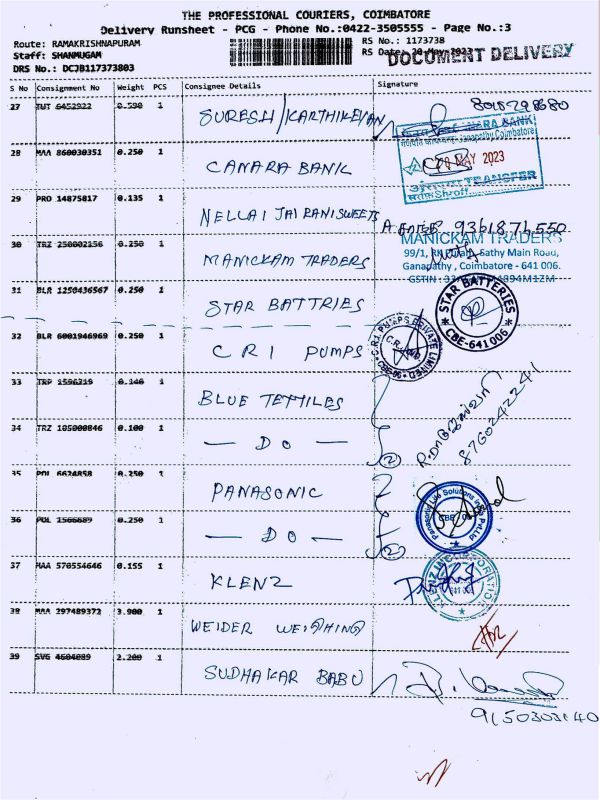 THE PROFESSIONAL COURIERS, COIMBATORE
Delivery Runsheet - PCG - Phone No.:0422-3505555 - Page No.:3
Route: RAMAKRISHNAPURAM
RS No.: 1173738
Staff: SHANMUGAM
RS Date: 20-May-2023
DOCUMENT DELIVERY
DRS No.: DCJB117373803
S No Consignment No Weight PCS Consignee Details Signature
27 TUT 6452922 0.590 1 SURESH/KARTHIKEYAN
CANARA BANK
Ganapathy, Coimbatore
MAY 2023
TRANSFER
Shroff
28 MAA 860030351 0.250 1 CANARA BANK
29 PRO 14875817 0.135 1 NELLAI JAI RANI SWEETS 9361871550
30 TRZ 250002156 0.250 1 MANICKAM TRADERS
MANICKAM TRADERS
99/1, Sathy Main Road,
Ganapathy, Coimbatore - 641 006.
GSTIN : 33
31 BLR 1250436567 0.250 1 STAR BATTRIES
STAR BATTERIES
CBE-641 006
32 BLR 6001946969 0.250 1 CRI PUMPS
C.R.I. PUMPS PRIVATE LIMITED
33 TRP 1596319 0.140 1 BLUE TETTILES
8760242241
34 TRZ 105000846 0.100 1 — DO — (2)
35 POL 6624858 0.250 1 PANASONIC
Panasonic Life Solutions India Pvt Ltd
36 POL 1566689 0.250 1 — DO — (2)
37 MAA 570554646 0.155 1 KLENZ
KLENZ INCORPORATION
38 MAA 297489372 3.900 1 WEIDER WEIGHING
39 SVG 4604089 2.200 1 SUDHAKAR BABU